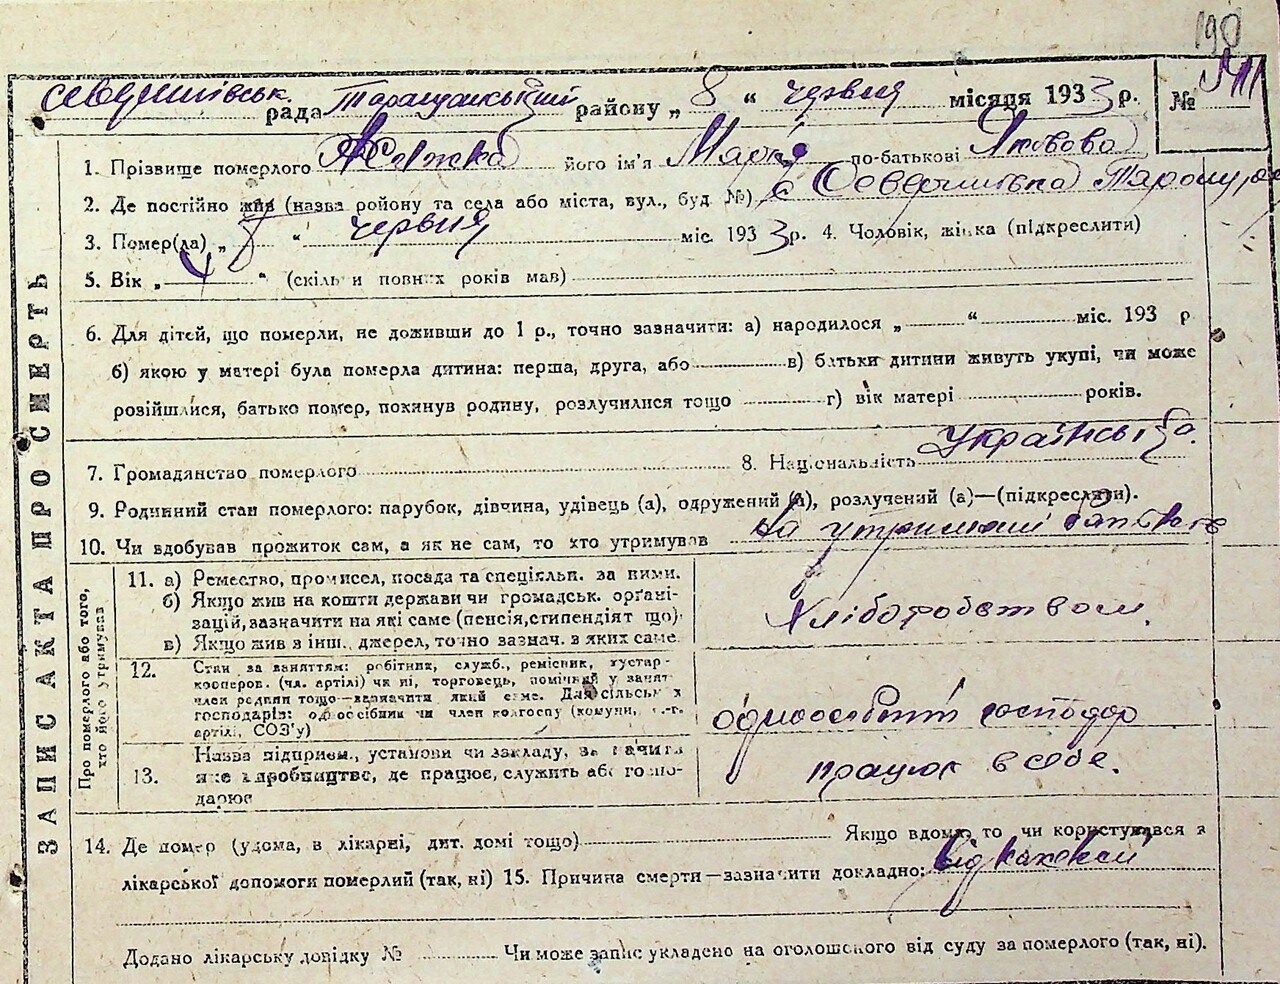 190
Северинівськ. рада Таращанський району „ 8 “ червня місяця 1933 р. №
1. Прізвище померлого його ім'я Марія по-батькові Яковова
2. Де постійно жив (назва району та села або міста, вул., буд. №) с Северинівка
3. Помер(ла) „ 8 “ червня міс. 1933 р. 4. Чоловік, жінка (підкреслити)
5. Вік „ 4 “ (скільки повних років мав)
6. Для дітей, що померли, не доживши до 1 р., точно зазначити: а) народилося „ “ міс. 193 р
б) якою у матері була померла дитина: перша, друга, або в) батьки дитини живуть укупі, чи може
розійшлися, батько помер, покинув родину, розлучилися тощо г) вік матері років.
7. Громадянство померлого 8. Національність Українська.
9. Родинний стан померлого: парубок, дівчина, удівець (а), одружений (а), розлучений (а)—(підкреслити).
10. Чи вдобував прожиток сам, а як не сам, то хто утримував на утриманні батьків
ЗАПИС АКТА ПРО СМЕРТЬ
Про померлого або того, хто його утримував
11. а) Ремество, промисел, посада та спеціяльн. за ними.
б) Якщо жив на кошти держави чи громадськ. орґані-
зацій, зазначити на які саме (пенсія, стипендіят що).
в) Якщо жив в інш. джерел, точно зазнач. в яких саме.
Хліборобством.
12. Стан за заняттям: робітник, служб., ремісник, кустар-
кооперов. (чл. артілі) чи ні, торговець, помічний у занят.
член родини тощо—зазначити який саме. Для сільськ х
господарів: одноосібник чи член колгоспу (комуни, с.-г.
артілі, СОЗ'у)
одноосібний господар
13. Назва підприєм., установи чи закладу, зазначити
яке виробництво, де працює, служить або госпо-
дарює
працює в себе.
14. Де помер (удома, в лікарні, дит. домі тощо) Якщо вдома, то чи користувався з
лікарської допомоги померлий (так, ні) 15. Причина смерти—зазначити докладно: від кахексії
Додано лікарську довідку № Чи може запис укладено на оголошеного від суду за померлого (так, ні).